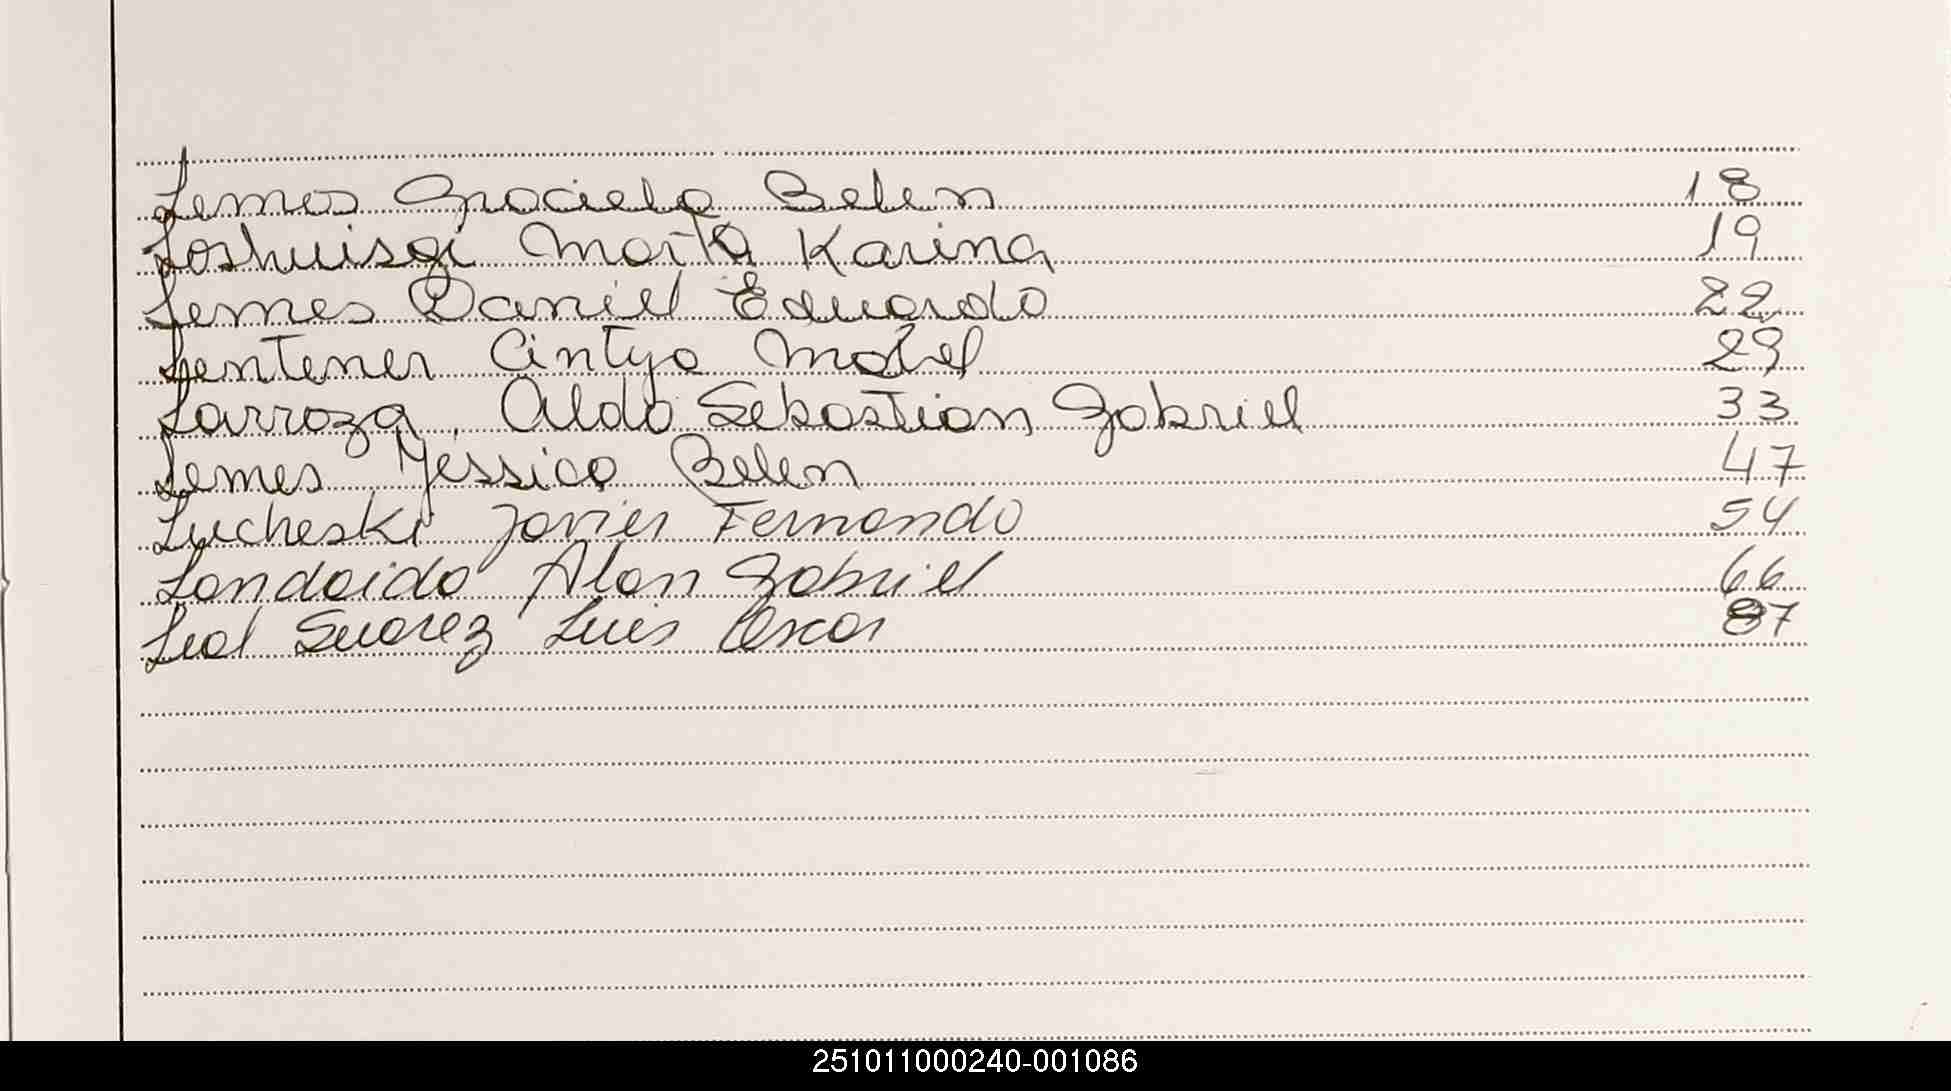 Lemos Graciela Belen 18
Loshuisgi Marta Karina 19
Lemes Daniel Eduardo 22
Lentener Cintya Mabel 29
Larroza, Aldo Sebastian Gabriel 33
Lemes Yessica Belen 47
Lucheski Javier Fernando 54
Landaido Alan Gabriel 66
Leal Suarez Luis Oscar 87
251011000240-001086